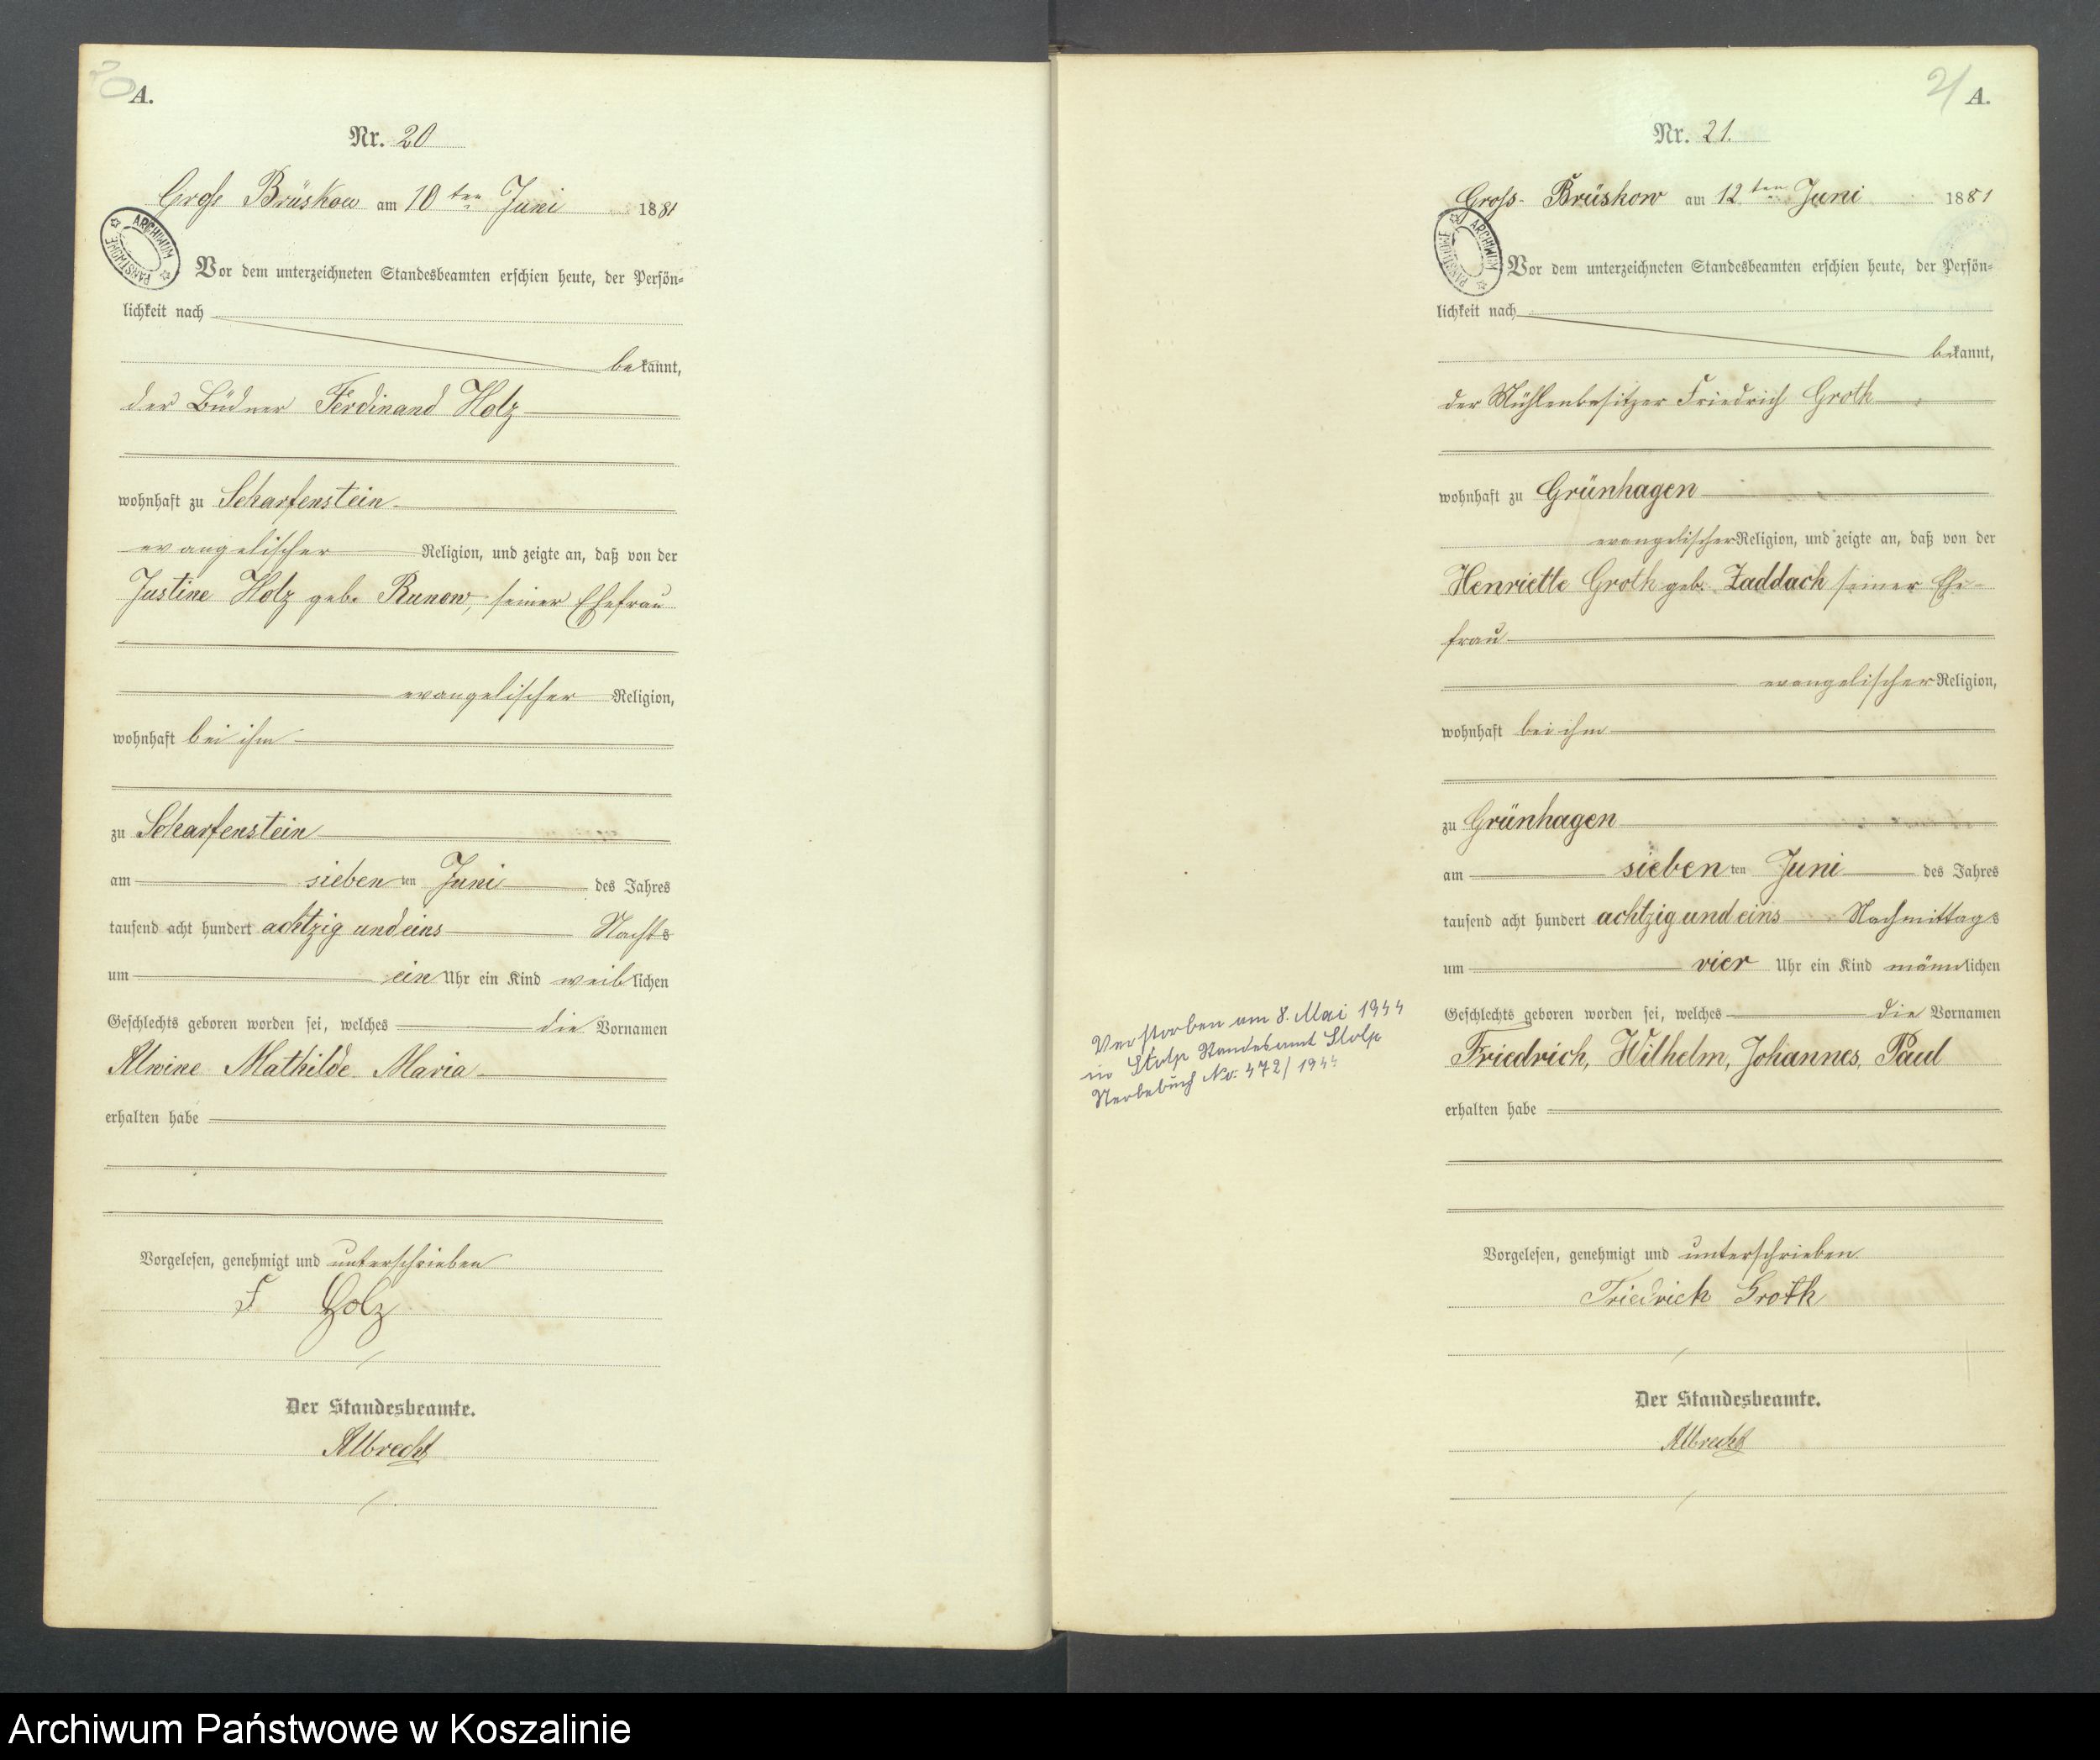 20
A.
Nr. 20
Groß Brüskow am 10ten Juni 1881
ARCHIWUM PAŃSTWOWE
Vor dem unterzeichneten Standesbeamten erschien heute, der Persön=
lichkeit nach
bekannt,
der Büdner Ferdinand Holz
wohnhaft zu Scharfenstein
evangelischer Religion, und zeigte an, daß von der
Justine Holz geb. Runow, seiner Ehefrau
evangelischer Religion,
wohnhaft bei ihm
zu Scharfenstein
am sieben ten Juni des Jahres
tausend acht hundert achtzig und eins Nachts
um ein Uhr ein Kind weiblichen
Geschlechts geboren worden sei, welches die Vornamen
Alwine Mathilde Maria
erhalten habe
Vorgelesen, genehmigt und unterschrieben
F Holz
Der Standesbeamte.
Albrecht
21
A.
Nr. 21.
Gross-Brüskow am 12ten Juni 1881
ARCHIWUM PAŃSTWOWE
Vor dem unterzeichneten Standesbeamten erschien heute, der Persön=
lichkeit nach
bekannt,
der Mühlenbesitzer Friedrich Groth
wohnhaft zu Grünhagen
evangelischer Religion, und zeigte an, daß von der
Henriette Groth geb. Zaddach seiner Ehe-
frau
evangelischer Religion,
wohnhaft bei ihm
zu Grünhagen
am sieben ten Juni des Jahres
tausend acht hundert achtzig und eins Nachmittags
um vier Uhr ein Kind männlichen
Geschlechts geboren worden sei, welches die Vornamen
Friedrich, Wilhelm, Johannes, Paul
erhalten habe
Verstorben am 8. Mai 1944
in Stolp Standesamt Stolp
Sterbebuch No. 472/1944
Vorgelesen, genehmigt und unterschrieben
Friedrich Groth
Der Standesbeamte.
Albrecht
Archiwum Państwowe w Koszalinie